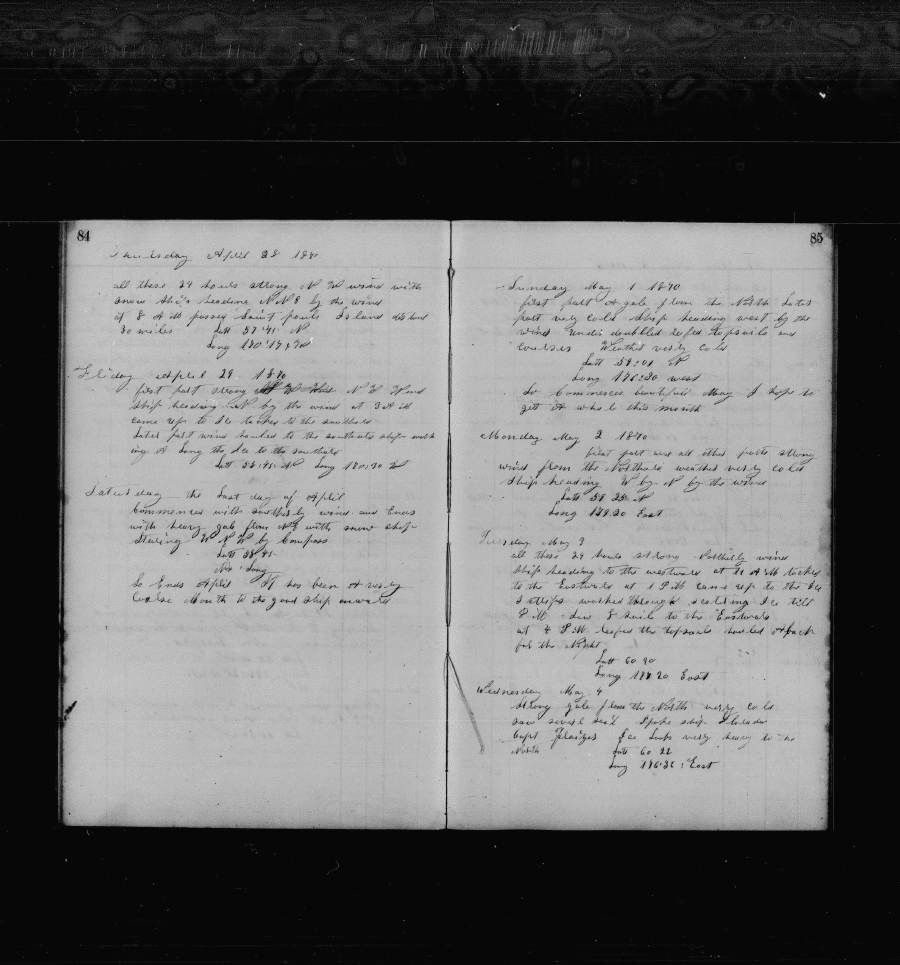 84
Thursday April 28 1870
all these 24 hours strong N W wind with
snow Ship heading N N E by the wind
at 8 A M passed Saint pauls Island
30 miles Latt 57"41 N
Long 170"
Friday April 29 1870
first part strong N W Wind
Ship heading N by the wind at 3 A M
came up to Ice tacked to the southard
Later part wind hauled to the southard ship work
ing A Long the Ice to the southard
Latt 58"41 N Long
Saturday the Last day of April
Commences with southerly wind and Ends
with heavy gale from N E with snow ship
Stering W N W by Compass
Latt 58"41
No Long
So Ends April It has been A verry
Coarse Month to the good Ship onward
85
Sunday May 1 1870
first part A gale from the North Later
part very cold Ship heading west by the
wind under doubbled reefed topsails and
courses Weather verry cold
Latt 59:01 N
Long 176:30 west
So Commences beautiful May I hope to
get A whale this month
Monday May 2 1870
first part and all other parts strong
wind from the Northard weather verry cold
Ship heading W by N by the wind
Latt 59 25 N
Long 179.20 East
Tuesday May 3
all these 24 hours strong Northerly wind
Ship heading to the westward at 11 A M tacked
to the Eastward at 1 P M came up to the Ice
I streps worked through scattring Ice till
P M Saw 8 sails to the Eastward
at 4 P M reefed the topsails hauled Aback
for the Night
Latt 60 20
Long 178.20 East
Wednesday May 4
Strong gale from the North verry cold
saw severl sail Spoke ship
Capt Ice Looks verry heavy to the
North Latt 60 22
Long 176"36 East